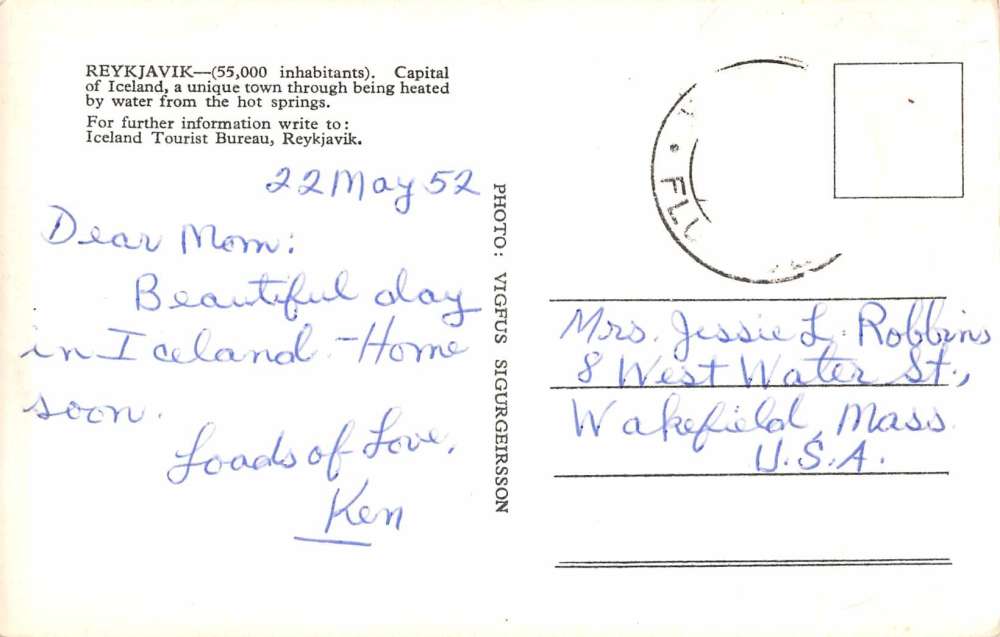 REYKJAVIK—(55,000 inhabitants). Capital
of Iceland, a unique town through being heated
by water from the hot springs.
For further information write to:
Iceland Tourist Bureau, Reykjavik.
22 May 52
Dear Mom:
Beautiful day
in Iceland - Home
soon.
Loads of Love,
Ken
PHOTO: VIGFUS SIGURGEIRSSON
FLU
Mrs. Jessie L. Robbins
8 West Water St.,
Wakefield, Mass.
U.S.A.